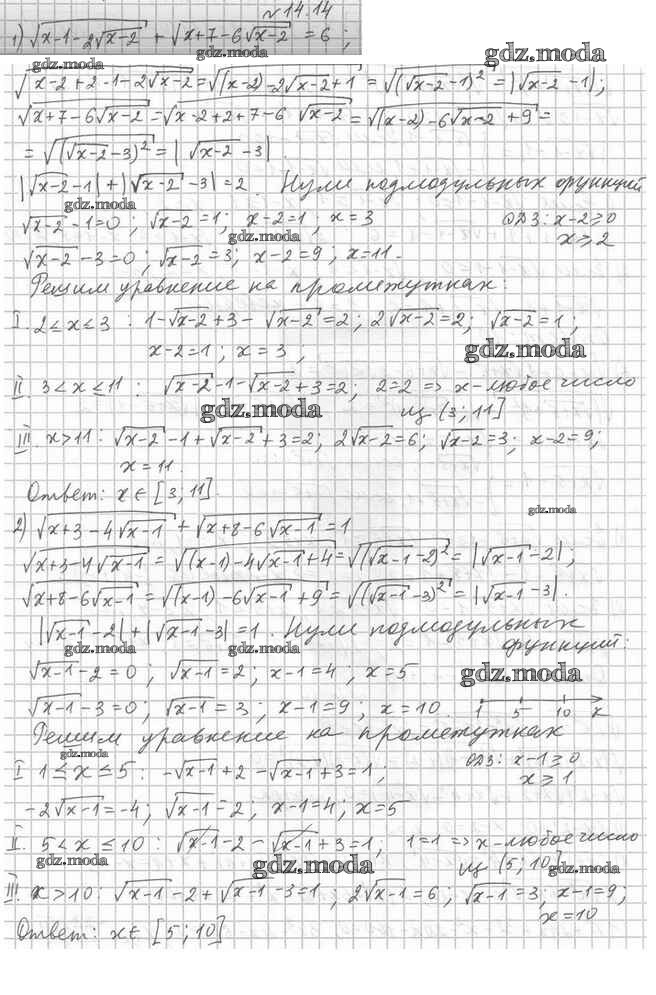 № 14.14
1) √(x-1-2√(x-2)) + √(x+7-6√(x-2)) = 6 ;
gdz.moda
gdz.moda
gdz.moda
√(x-2+2-1-2√(x-2)) = √((x-2)-2√(x-2)+1) = √((√(x-2)-1)²) = |√(x-2)-1);
√(x+7-6√(x-2)) = √(x-2+2+7-6√(x-2)) = √((x-2)-6√(x-2)+9) =
= √((√(x-2)-3)²) = |√(x-2)-3|.
|√(x-2)-1|+|√(x-2)-3|=2. Нули подмодульных функций
gdz.moda
√(x-2)-1=0; √(x-2)=1; x-2=1; x=3 ОДЗ: x-2≥0
gdz.moda
x≥2
√(x-2)-3=0; √(x-2)=3; x-2=9; x=11.
Решим уравнение на промежутках:
I. 2≤x≤3 : 1-√(x-2)+3-√(x-2)=2; 2√(x-2)=2; √(x-2)=1;
x-2=1; x=3;
gdz.moda
II. 3<x≤11 : √(x-2)-1-√(x-2)+3=2; 2=2 => x-любое число
gdz.moda
из (3;11]
III. x>11: √(x-2)-1+√(x-2)+3=2; 2√(x-2)=6; √(x-2)=3; x-2=9;
x=11.
Ответ: x∈[3;11].
gdz.moda
2) √(x+3-4√(x-1)) + √(x+8-6√(x-1)) = 1
√(x+3-4√(x-1)) = √((x-1)-4√(x-1)+4) = √((√(x-1)-2)²) = |√(x-1)-2|;
√(x+8-6√(x-1)) = √((x-1)-6√(x-1)+9) = √((√(x-1)-3)²) = |√(x-1)-3|.
|√(x-1)-2|+|√(x-1)-3|=1. Нули подмодульных
gdz.moda
gdz.moda
функций:
√(x-1)-2=0; √(x-1)=2; x-1=4; x=5
gdz.moda
√(x-1)-3=0; √(x-1)=3; x-1=9; x=10
1 5 10 x
Решим уравнение на промежутках
gdz.moda
I 1≤x≤5: -√(x-1)+2-√(x-1)+3=1; ОДЗ: x-1≥0
x≥1
-2√(x-1)=-4; √(x-1)=2; x-1=4; x=5
II. 5<x≤10: √(x-1)-2-√(x-1)+3=1; 1=1 => x-любое число
gdz.moda
gdz.moda
из (5;10]
gdz.moda
III. x>10: √(x-1)-2+√(x-1)-3=1; 2√(x-1)=6; √(x-1)=3; x-1=9;
x=10
Ответ: x∈[5;10]